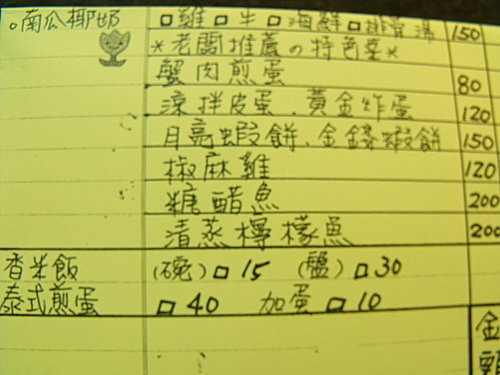 。南瓜椰奶 □雞□牛□海鮮□排骨湯 150
*老闆推薦の特色菜*
蟹肉煎蛋 80
涼拌皮蛋、黃金炸蛋 120
月亮蝦餅、金錢蝦餅 150
椒麻雞 120
糖醋魚 200
清蒸檸檬魚 200
香米飯 (碗)□15 (盤)□30
泰式煎蛋 □40 加蛋□10
金